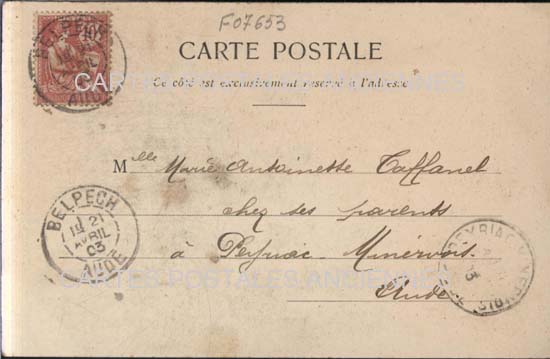 F07653
BELPECH
AUDE
10
CARTE POSTALE
CARTES POSTALES ANCIENNES
Ce côté est exclusivement réservé à l'adresse
Mlle Marie Antoinette Taffanel
chez ses parents
à Peyriac-Minervois
Aude
BELPECH
21
AVRIL
03
AUDE
PEYRIAC-MINERVOIS
CARTES POSTALES ANCIENNES